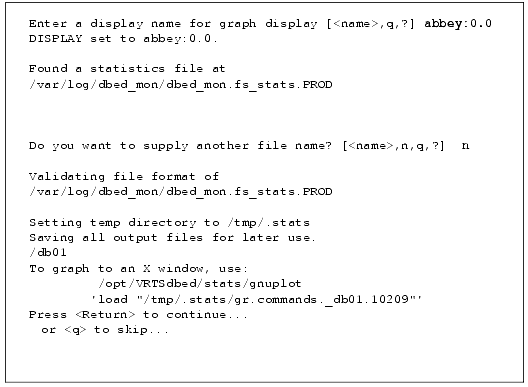 Enter a display name for graph display [<name>,q,?] abbey:0.0
DISPLAY set to abbey:0.0.
Found a statistics file at
/var/log/dbed_mon/dbed_mon.fs_stats.PROD
Do you want to supply another file name? [<name>,n,q,?] n
Validating file format of
/var/log/dbed_mon/dbed_mon.fs_stats.PROD
Setting temp directory to /tmp/.stats
Saving all output files for later use.
/db01
To graph to an X window, use:
/opt/VRTSdbed/stats/gnuplot
'load "/tmp/.stats/gr.commands._db01.10209"'
Press <Return> to continue...
or <q> to skip...